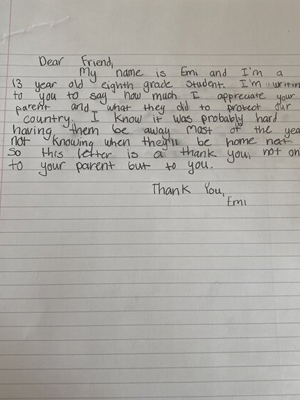 Dear Friend,
My name is Emi and I'm a
13 year old eighth grade student. I'm writin
to you to say how much I appreciate your
parent and what they did to protect our
country. I know it was probably hard
having them be away most of the yea
not knowing when they'll be home nex
So this letter is a thank you, not on
to your parent but to you.
Thank You,
Emi